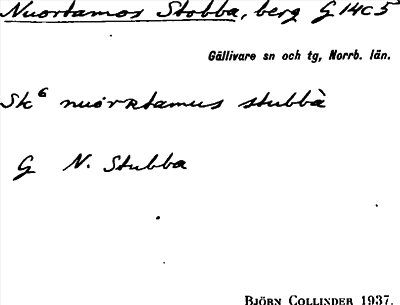 Nuortamos Stobba, berg G 14c5
Gällivare sn och tg, Norrb. län.
Sk⁶ nuórʀtamus stubbà
G N. Stubba
BJÖRN COLLINDER 1937.